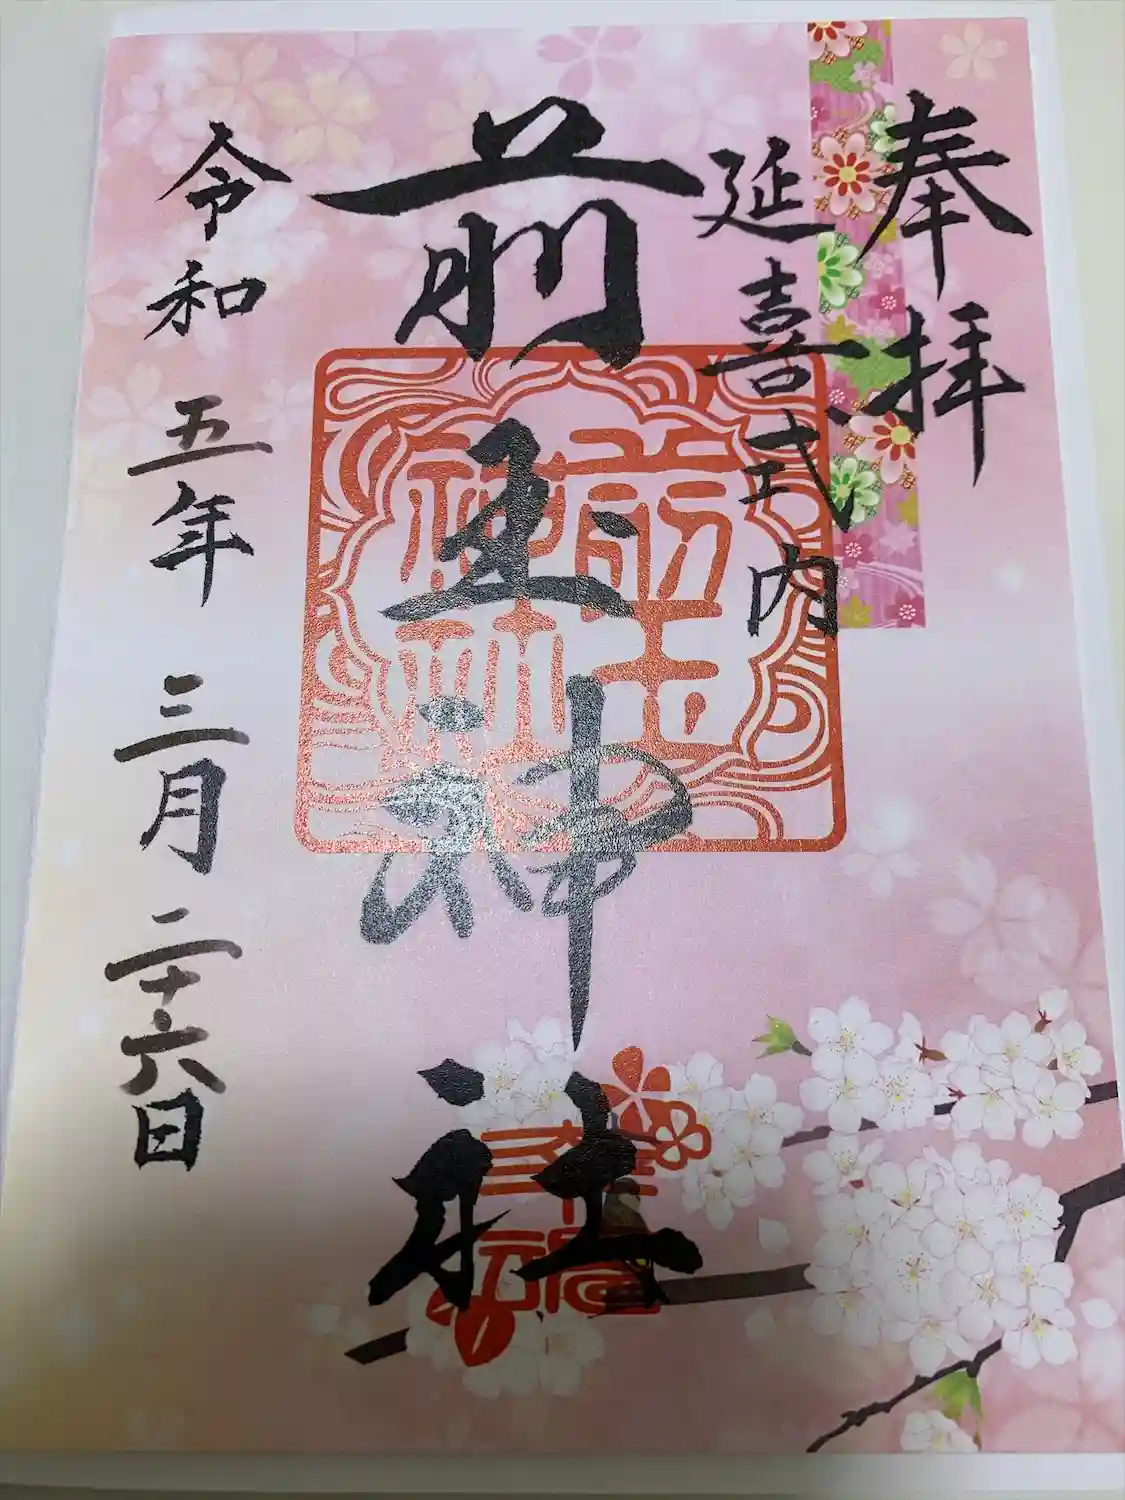 奉拝
延喜式内
前玉神社
前玉
神社
令和五年三月二十六日